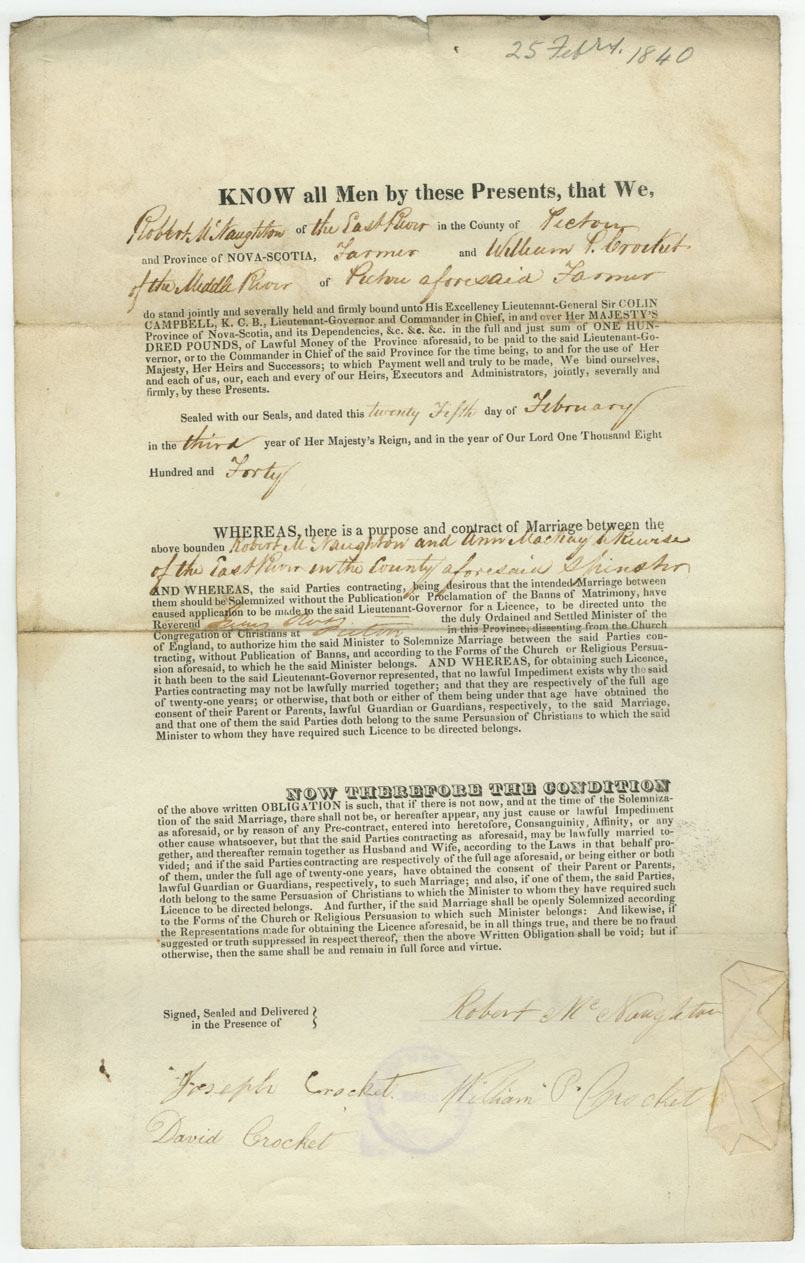 25 Febry. 1840
KNOW all Men by these Presents, that We,
Robert McNaughton of the East River in the County of Pictou
and Province of NOVA-SCOTIA, Farmer and William P. Crocket
of the Middle River of Pictou aforesaid Farmer
do stand jointly and severally held and firmly bound unto His Excellency Lieutenant-General Sir COLIN
CAMPBELL, K. C. B., Lieutenant-Governor and Commander in Chief, in and over Her MAJESTY'S
Province of Nova-Scotia, and its Dependencies, &c. &c. &c. in the full and just sum of ONE HUN-
DRED POUNDS, of Lawful Money of the Province aforesaid, to be paid to the said Lieutenant-Go-
vernor, or to the Commander in Chief of the said Province for the time being, to and for the use of Her
Majesty, Her Heirs and Successors; to which Payment well and truly to be made, We bind ourselves,
and each of us, our, each and every of our Heirs, Executors and Administrators, jointly, severally and
firmly, by these Presents.
Sealed with our Seals, and dated this twenty Fifth day of February
in the third year of Her Majesty's Reign, and in the year of Our Lord One Thousand Eight
Hundred and Forty
WHEREAS, there is a purpose and contract of Marriage between the
above bounden Robert McNaughton and Ann Mackay likewise
of the East River in the County aforesaid Spinster
AND WHEREAS, the said Parties contracting, being desirous that the intended Marriage between
them should be Solemnized without the Publication or Proclamation of the Banns of Matrimony, have
caused application to be made to the said Lieutenant-Governor for a Licence, to be directed unto the
Reverend James Ross the duly Ordained and Settled Minister of the
Congregation of Christians at Pictou in this Province, dissenting from the Church
of England, to authorize him the said Minister to Solemnize Marriage between the said Parties con-
tracting, without Publication of Banns, and according to the Forms of the Church or Religious Persua-
sion aforesaid, to which he the said Minister belongs. AND WHEREAS, for obtaining such Licence,
it hath been to the said Lieutenant-Governor represented, that no lawful Impediment exists why the said
Parties contracting may not be lawfully married together; and that they are respectively of the full age
of twenty-one years; or otherwise, that both or either of them being under that age have obtained the
consent of their Parent or Parents, lawful Guardian or Guardians, respectively, to the said Marriage,
and that one of them the said Parties doth belong to the same Persuasion of Christians to which the said
Minister to whom they have required such Licence to be directed belongs.
NOW THEREFORE THE CONDITION
of the above written OBLIGATION is such, that if there is not now, and at the time of the Solemniza-
tion of the said Marriage, there shall not be, or hereafter appear, any just cause or lawful Impediment
as aforesaid, or by reason of any Pre-contract, entered into heretofore, Consanguinity, Affinity, or any
other cause whatsoever, but that the said Parties contracting as aforesaid, may be lawfully married to-
gether, and thereafter remain together as Husband and Wife, according to the Laws in that behalf pro-
vided; and if the said Parties contracting are respectively of the full age aforesaid, or being either or both
of them, under the full age of twenty-one years, have obtained the consent of their Parent or Parents,
lawful Guardian or Guardians, respectively, to such Marriage; and also, if one of them, the said Parties,
doth belong to the same Persuasion of Christians to which the Minister to whom they have required such
Licence to be directed belongs. And further, if the said Marriage shall be openly Solemnized according
to the Forms of the Church or Religious Persuasion to which such Minister belongs: And likewise, if
the Representations made for obtaining the Licence aforesaid, be in all things true, and there be no fraud
suggested or truth suppressed in respect thereof, then the above Written Obligation shall be void; but if
otherwise, then the same shall be and remain in full force and virtue.
Signed, Sealed and Delivered
in the Presence of
Robert McNaughton
Joseph Crocket. William P. Crocket
David Crocket